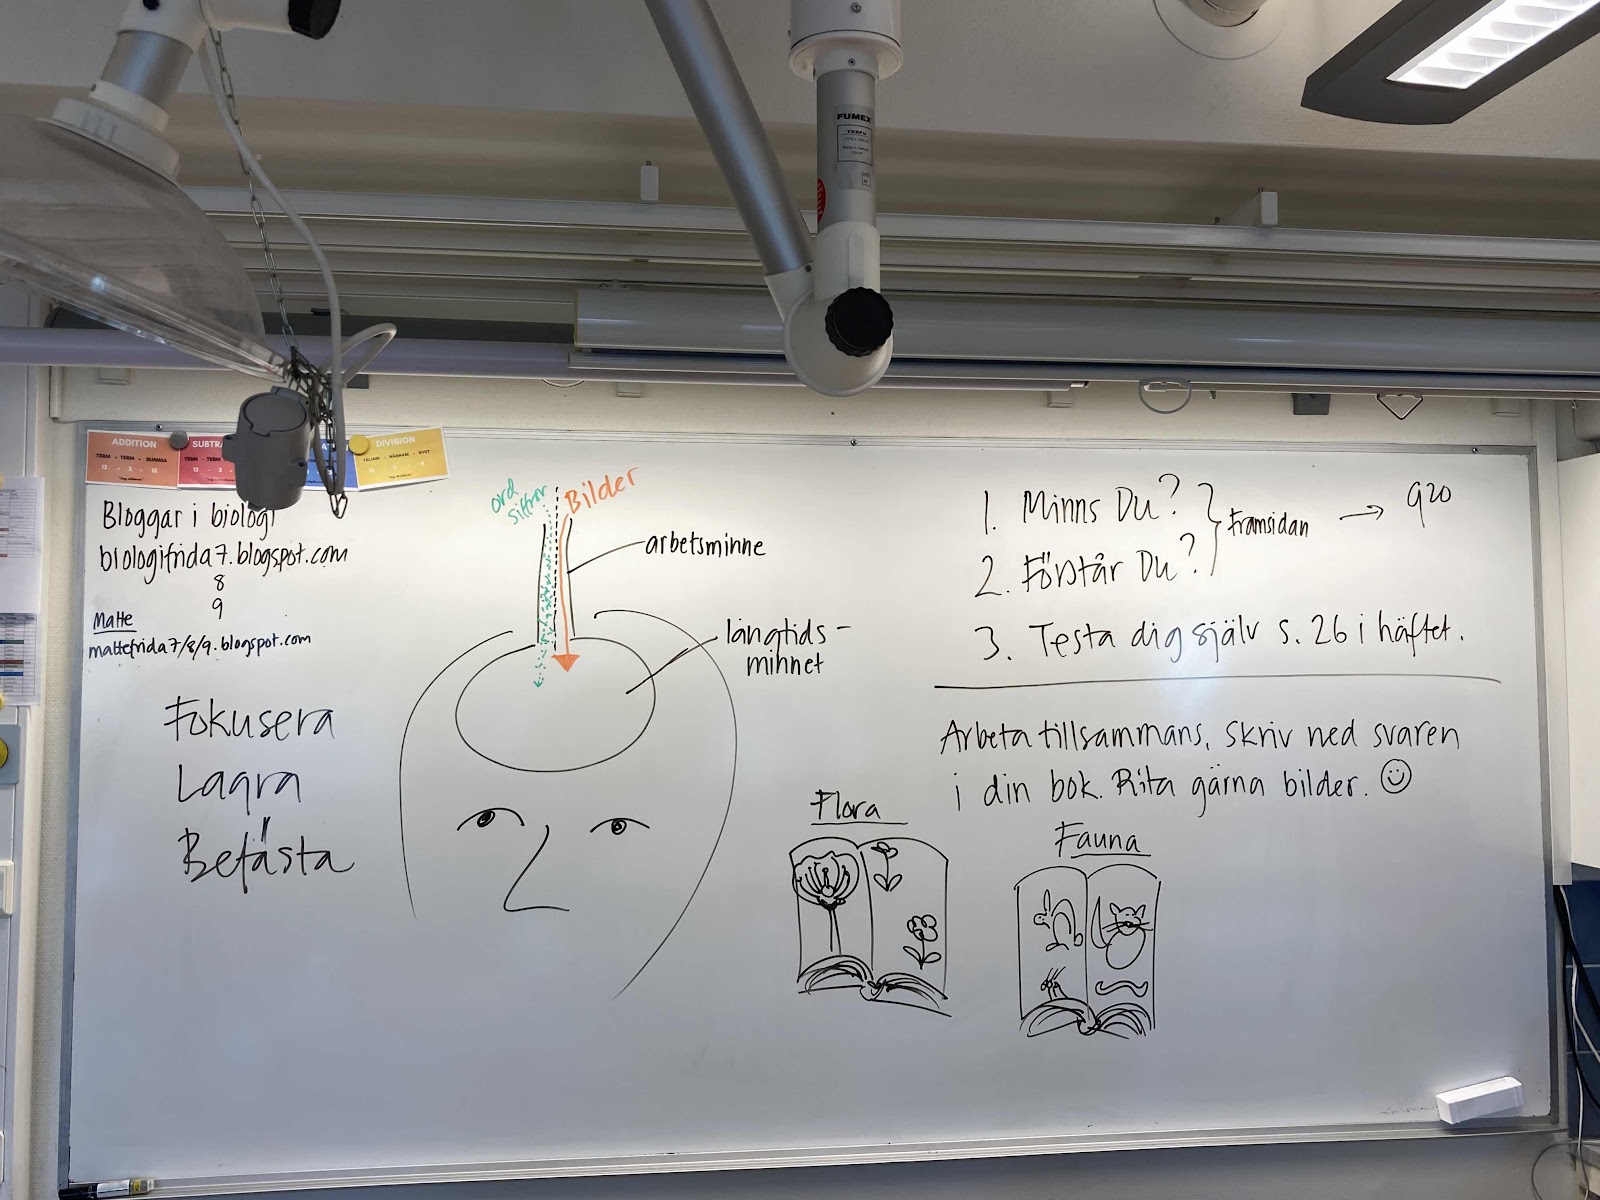 FUMEX
TERFU
ADDITION
TERM + TERM = SUMMA
SUBTRA
DIVISION
Bloggar i biologi
biologifrida7.blogspot.com
8
9
Matte
mattefrida7/8/9.blogspot.com
Fokusera
Lagra
Befästa
ord
siffror
Bilder
arbetsminne
långtids-
minnet
1. Minns Du? } Framsidan → 920
2. Förstår Du?
3. Testa dig själv s. 26 i häftet.
Arbeta tillsammans, skriv ned svaren
i din bok. Rita gärna bilder. ☺
Flora
Fauna